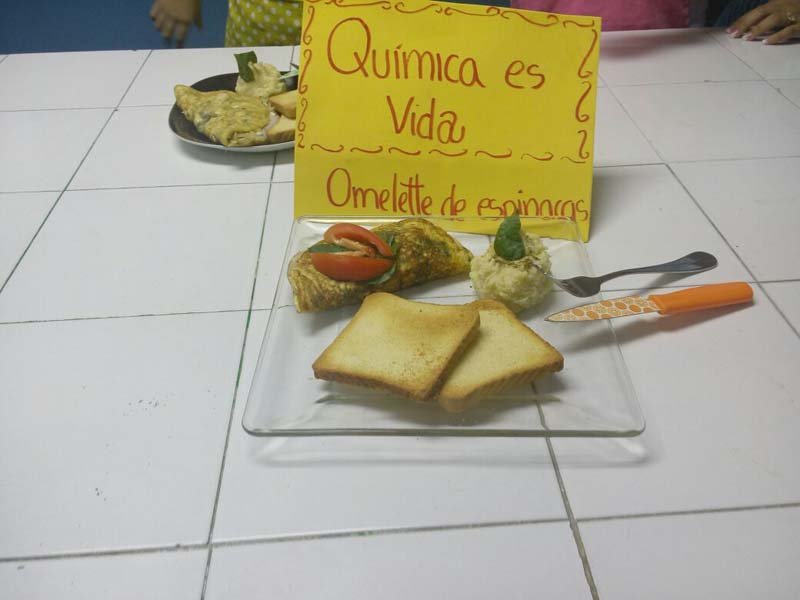 Química es
Vida
Omelette de espinacas